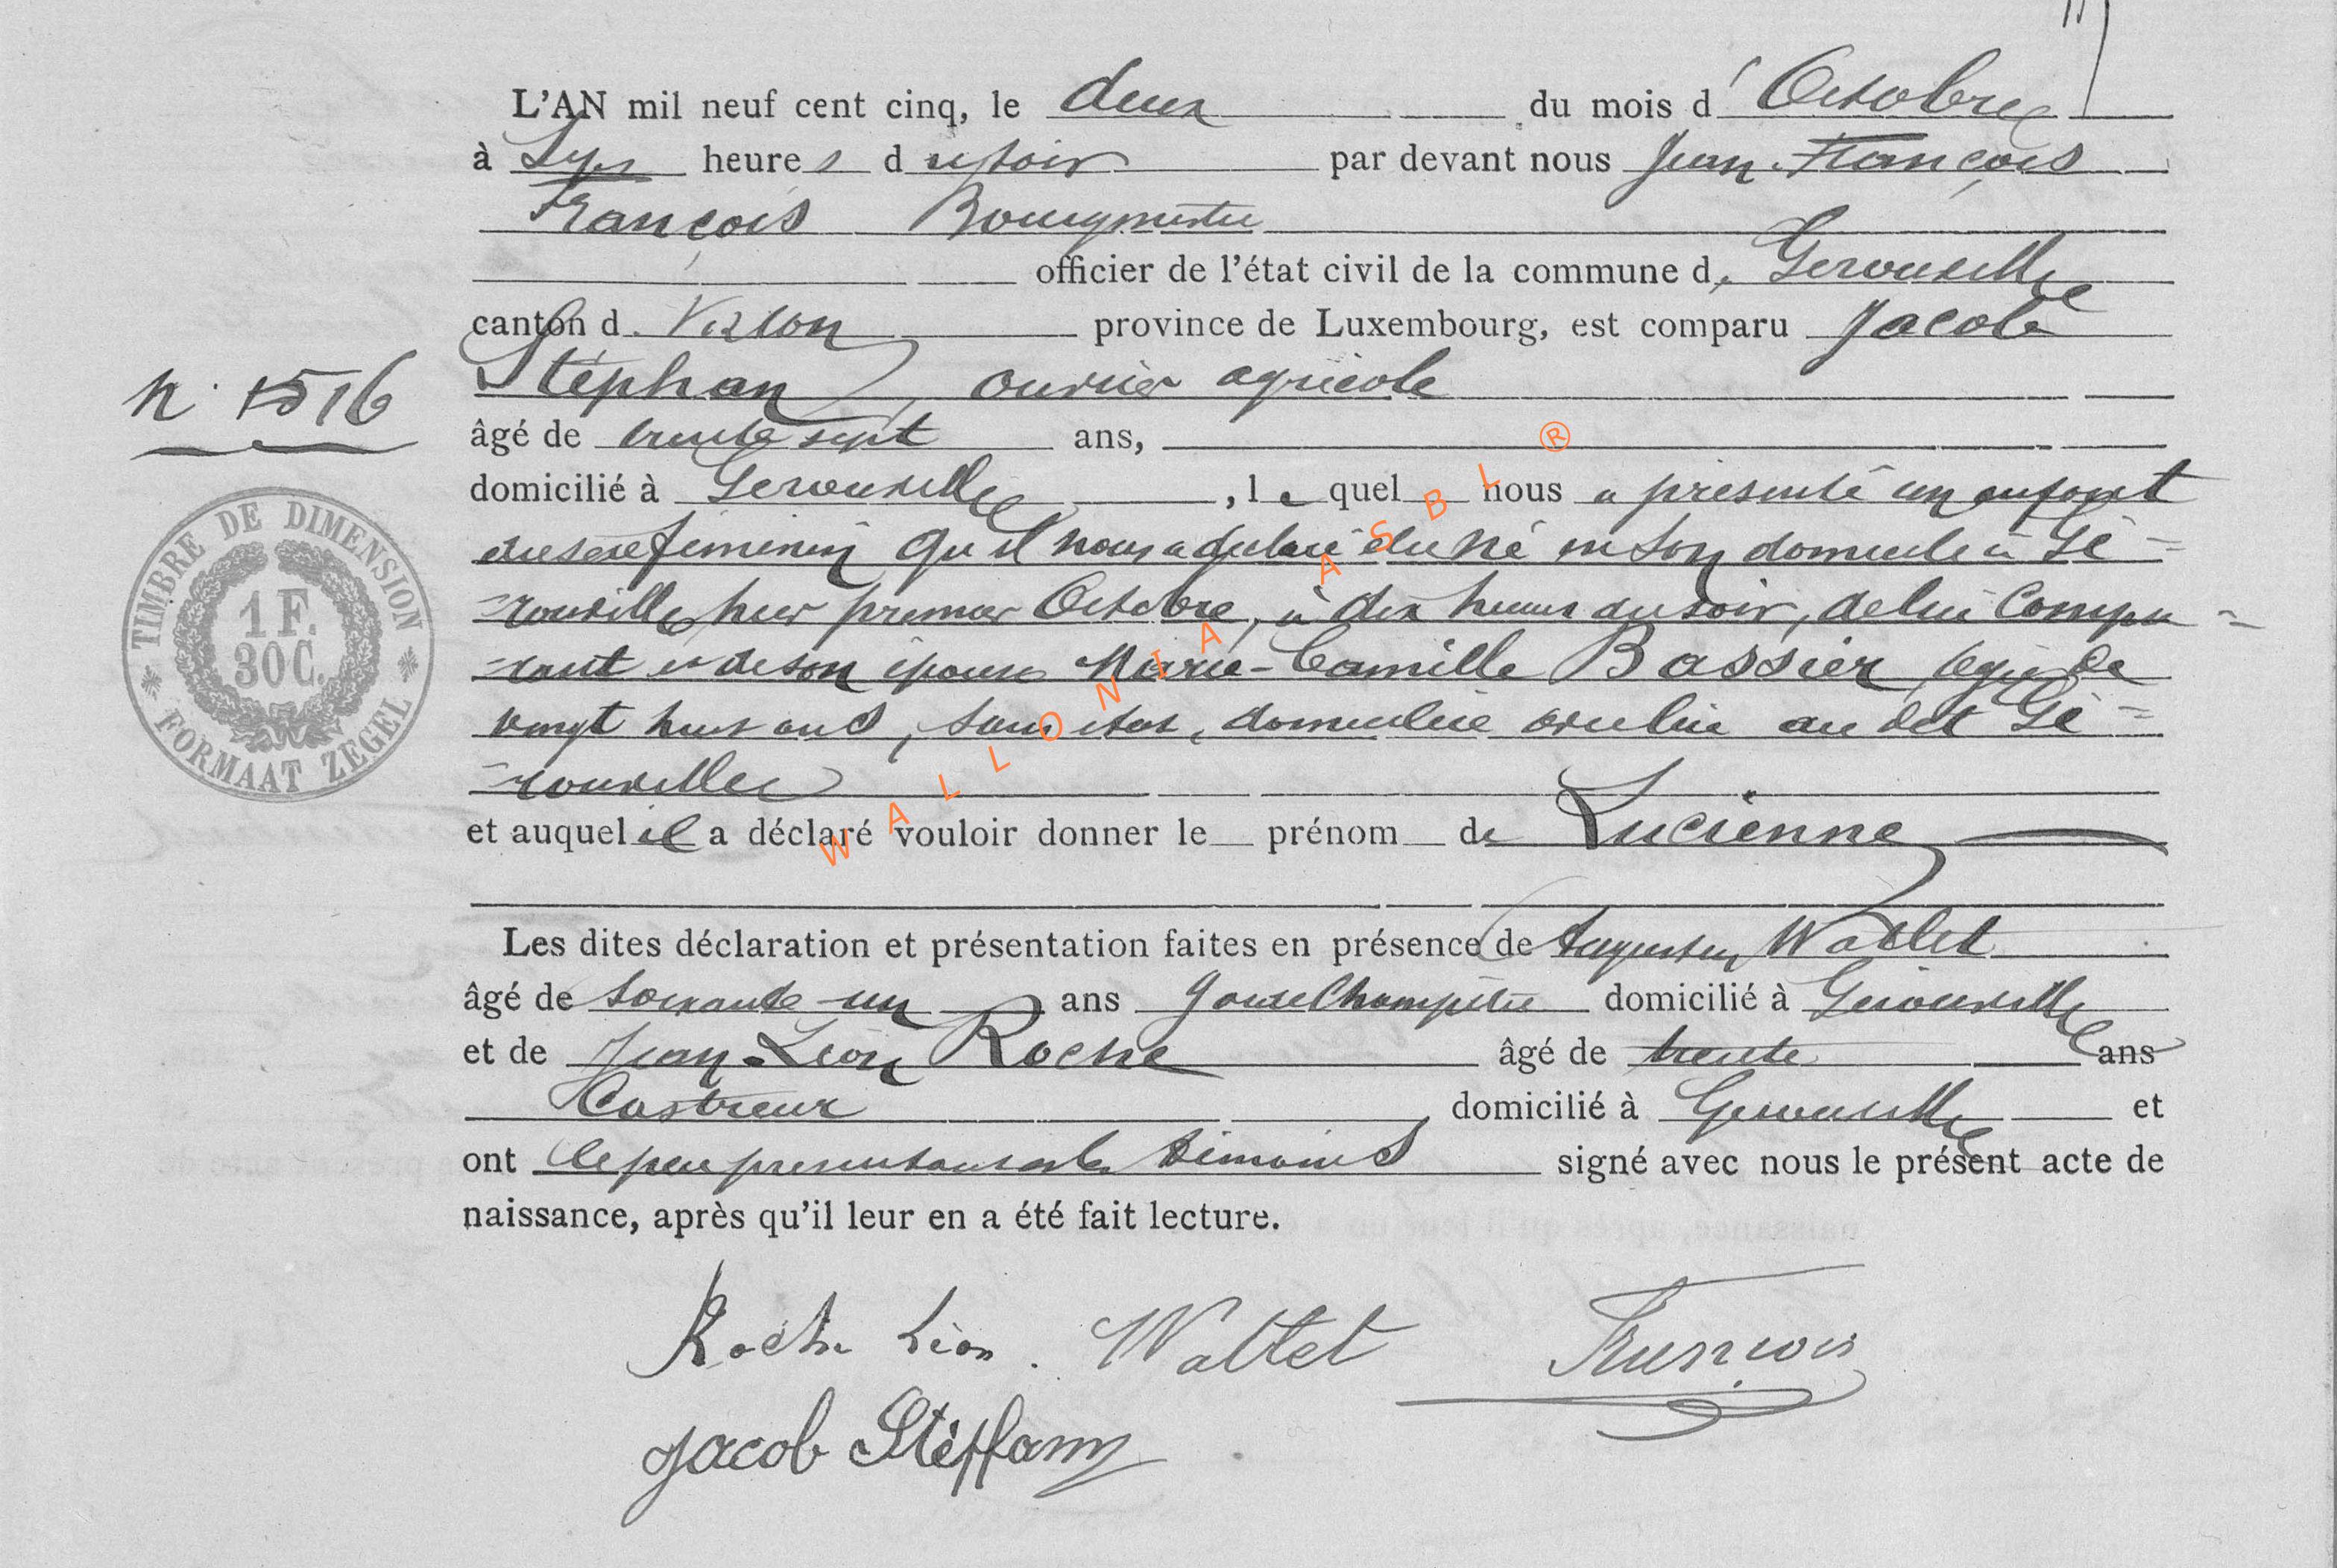 L'AN mil neuf cent cinq, le deux du mois d'Octobre
à Sept heures du soir par devant nous Jean-François
François Bourgmestre
officier de l'état civil de la commune de Gérouville
canton d. Virton province de Luxembourg, est comparu Jacob
Stéphan, ouvrier agricole
N. 1516
âgé de trente sept ans,
domicilié à Gerouville, le quel nous a présenté un enfant
du sexe féminin qu'il nous a déclaré être né en son domicile à Gé=
=rouville hier premier Octobre, à dix heures du soir, de lui Compa=
=rant et de son épouse Marie-Camille Bassier, agée de
vingt huit ans, sans état, domiciliée avec lui au dit Gé=
=rouville
et auquel il a déclaré vouloir donner le prénom de Lucienne
Les dites déclaration et présentation faites en présence de Augustin Wattlet
âgé de soixante-un ans garde Champêtre domicilié à Gerouville
et de Jean-Léon Roche âgé de trente ans
Castreur domicilié à Gerouville et
ont le père présentant et les témoins signé avec nous le présent acte de
naissance, après qu'il leur en a été fait lecture.
Roche Léon. Wattet François
Jacob Stéffann
TIMBRE DE DIMENSION
1 F.
30 C.
FORMAAT ZEGEL
WALLONIA ASBL ®